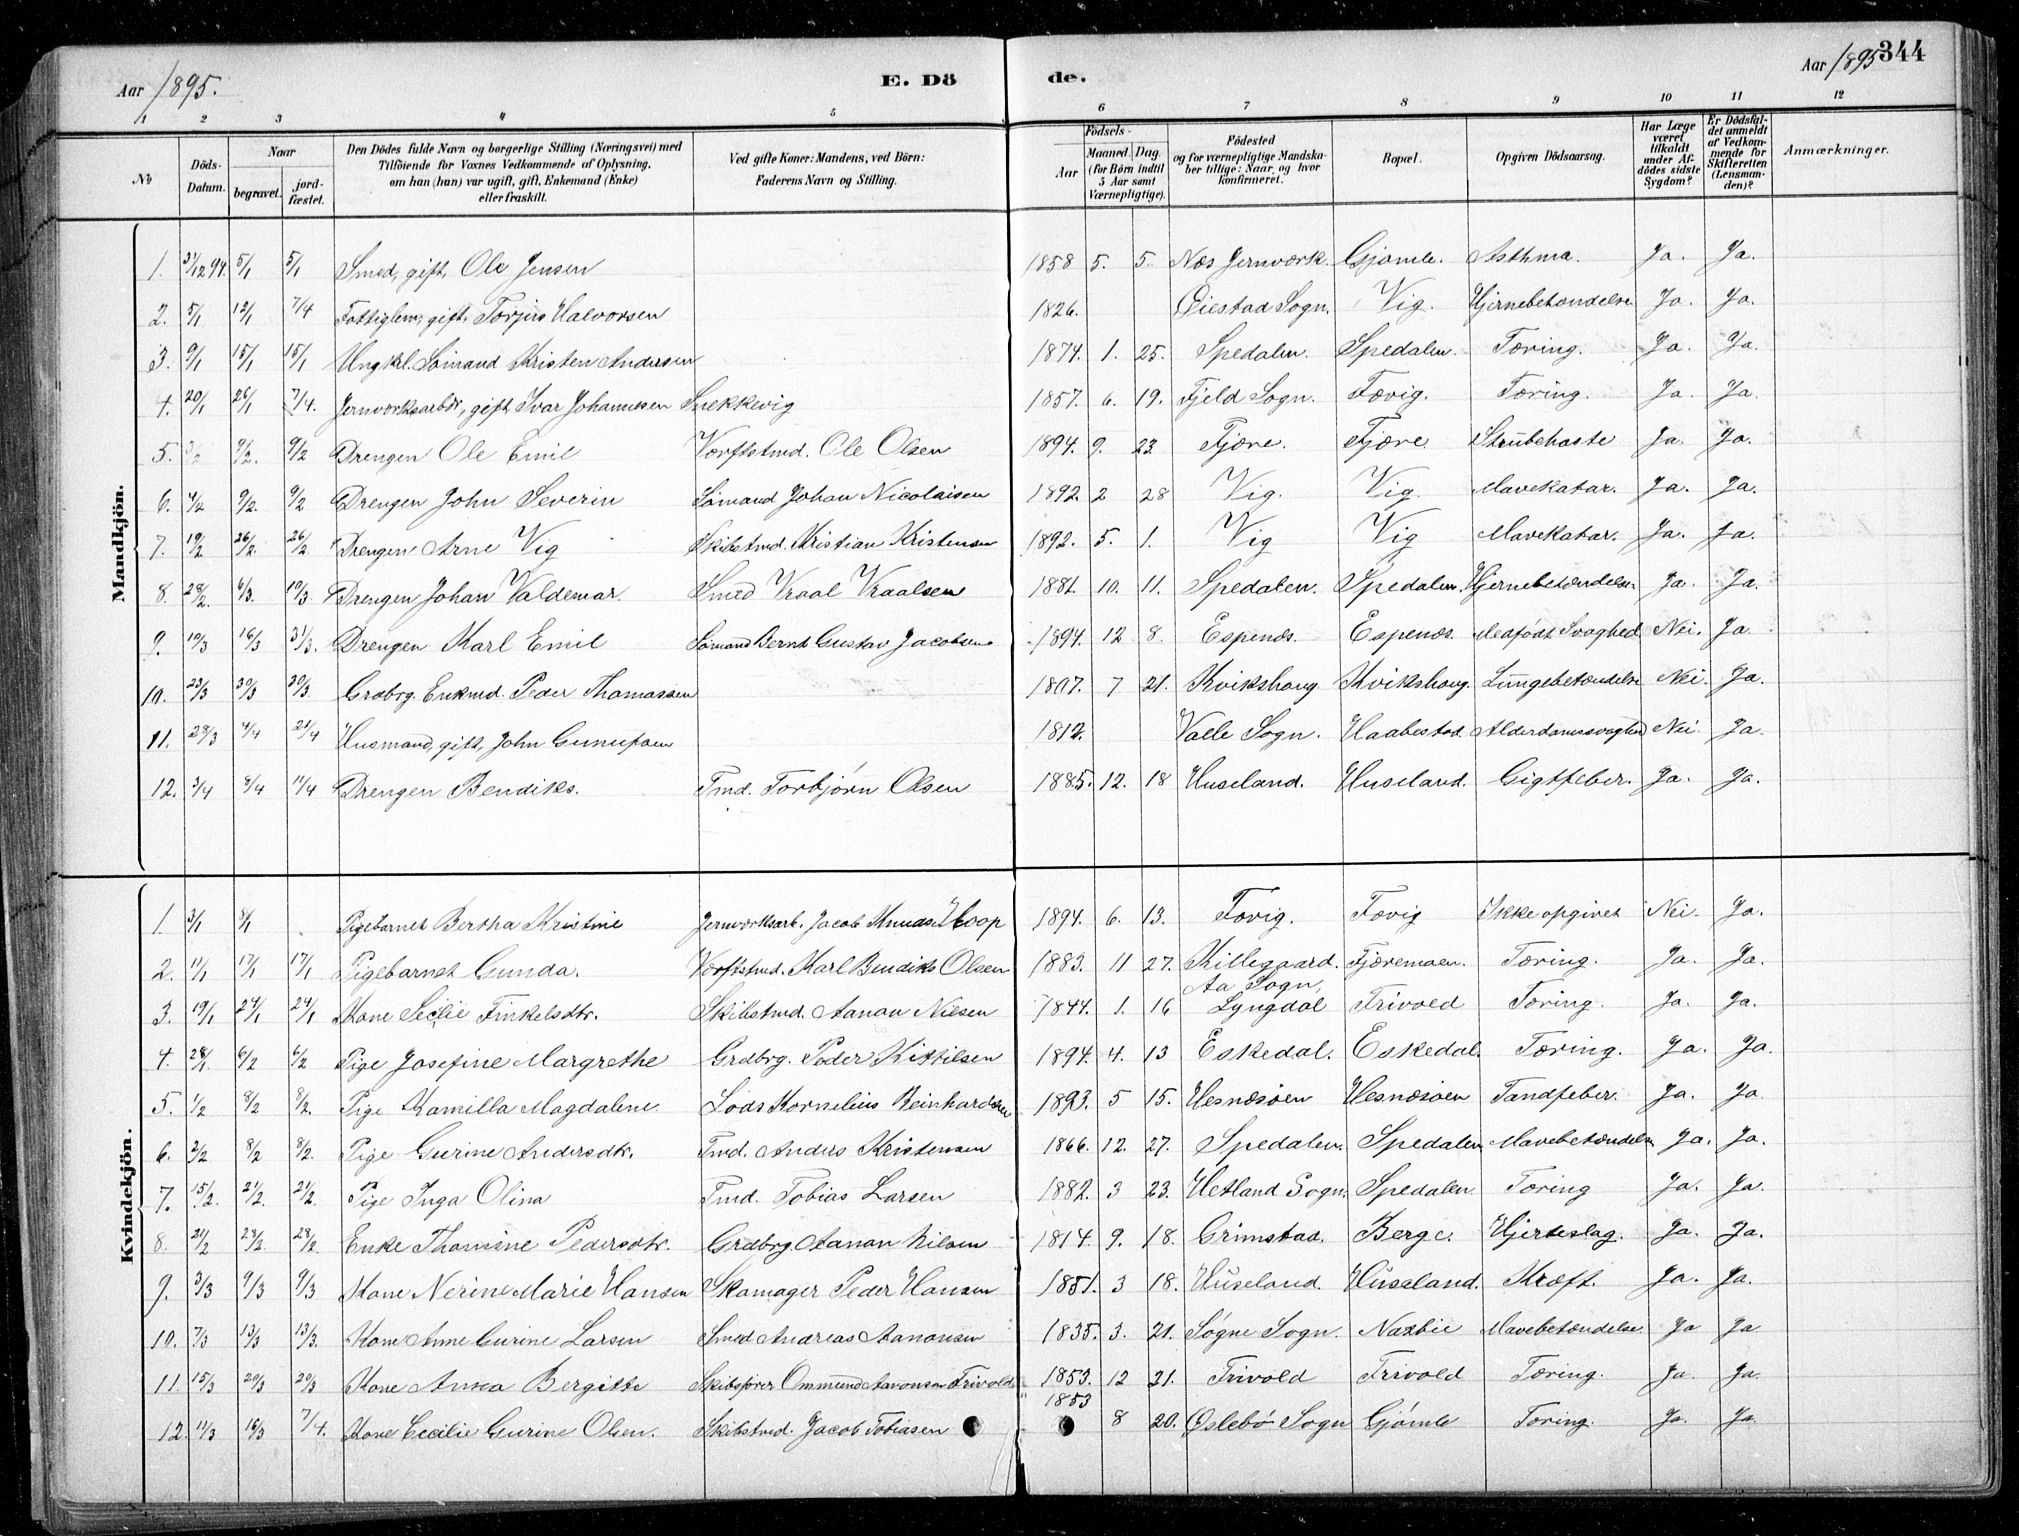 Aar 1895.
E. Dö
de.
Aar 1895
344
1 2 3 4 5 6 7 8 9 10 11 12
No
Döds-Datum.
Naar
begravet.
jord-fæstet.
Den Dödes fulde Navn og borgerlige Stilling (Næringsvei) med
Tilföiende for Voxnes Vedkommende af Oplysning,
om han (hun) var ugift, gift, Enkemand (Enke)
eller fraskilt.
Ved gifte Koner: Mandens, ved Börn:
Faderens Navn og Stilling.
Födsels-
Aar
Maaned. (for Börn indtil 5 Aar samt Værnepligtige).
Dag.
Födested
og for værnepligtige Mandskaber tillige: Naar og hvor konfirmeret.
Bopæl.
Opgiven Dödsaarsag.
Har Læge været tilkaldt under Afdödes sidste Sygdom?
Er Dödsfaldet anmeldt af Vedkommende for Skifteretten (Lensmanden)?
Anmærkninger.
Mandkjön.
1. 31/12 94. 5/1 5/1 Smed, gift, Ole Jensen 1858 5. 5. Næs Jernværk. Gjømle. Asthma. Ja. Ja.
2. 5/1 12/1 7/4 Fattiglem, gift, Torjus Halvorsen 1826. Øiestad Sogn. Vig. Hjernebetændelse Ja. Ja.
3. 9/1 15/1 15/1 Ungkl. Sømand Kristen Andersen 1874. 1. 25. Spedalen. Spedalen. Tæring. Ja. Ja.
4. 20/1 26/1 7/4. Jernværksarbdr, gift, Ivar Johannessen Snekkevig 1857. 6. 19. Fjeld Sogn. Fævig. Tæring. Ja. Ja.
5. 9/2. 9/2 Drengen Ole Emil Værftstmd. Ole Olsen 1894. 9. 23 Fjære. Fjære Strubehoste Ja. Ja.
6. 4/2 9/2. 9/2 Drengen John Severin Sømand Johan Nicolaisen 1892 2 28 Vig. Vig. Mavekatar. Ja. Ja.
7. 19/2 26/2. 26/2. Drengen Arne Vig Skibstmd. Kristian Kristensen 1892. 5. 1. Vig Vig Mavekatar. Ja. Ja.
8. 28/2. 6/3. 10/3. Drengen Johan Valdemar. Smed Vraal Vraalsen 1881. 10. 11. Spedalen. Spedalen. Hjernebetændelse. Ja. Ja.
9. 10/3 16/3 31/3. Drengen Karl Emil Sømand Bernt Gustav Jacobsen 1894. 12 8. Espenæs. Espenæs. Medfødt Svaghed Nei. Ja.
10. 23/3 30/3 30/3. Grdbrg. Enkmd. Peder Thomassen 1807. 7 21. Kvikshaug Kvikshaug. Lungebetændelse Nei. Ja.
11. 28/3 4/4 21/4 Husmand, gift, John Gunufsen 1812. Valle Sogn. Haabestad. Alderdomssvaghed Nei. Ja.
12. 3/4 8/4 11/4 Drengen Bendiks. Tmd. Torbjørn Olsen 1885. 12. 18 Huseland. Huseland. Gigtfeber. Ja. Ja.
Kvindekjön.
1. 3/1 8/1 Pigebarnet Bertha Kristine Jernværksarb. Jacob Knuds. Hoop 1894. 6. 13. Fævig. Fævig Ikke opgivet Nei. Ja.
2. 11/1 17/1 17/1 Pigebarnet Gunda. Værftstmd. Karl Bendiks Olsen 1883. 11 27. Killegaard. Fjæremoen. Tæring. Ja. Ja.
3. 19/1 24/1 24/1 Kone Secilie Finkelsdtr. Skibstmd. Aanon Nielsen 1844. 1. 16 Aa Sogn, Lyngdal Frivold Tæring. Ja. Ja.
4. 28/1. 6/2 6/2 Pige Josefine Margrethe Grdbrg. Peder Kittilsen 1894. 4. 13 Eskedal. Eskedal. Tæring. Ja. Ja.
5. 1/2 8/2 8/2. Pige Kamilla Magdalene. Lods Kornelius Reinhardtsen 1893. 5 15. Hesnæsøen Hesnæsøen Tandfeber. Ja. Ja
6. 2/2 8/2 8/2. Pige Gurine Andersdtr. Tmd. Anders Kristensen 1866. 12. 27. Spedalen. Spedalen Mavebetændelse Ja. Ja.
7. 15/2. 21/2 21/2. Pige Inga Olina Tmd. Tobias Larsen 1882. 3 23. Hetland Sogn. Spedalen. Tæring Ja. Ja.
8. 21/2 28/2. 28/2. Enke Thomine Pedersdtr. Grdbrg Aanon Nilsen 1814. 9. 18. Grimstad. Berge. Hjerteslag. Ja. Ja.
9. 3/3 9/3 9/3 Kone Nerine Marie Hansen Skomager Peder Hansen 1851. 3 18. Huseland. Huseland. Kræft. Ja. Ja.
10. 7/3 13/3 13/3. Kone Anne Gurine Larsen Smed Andreas Aanonsen 1835. 3. 21. Søgne Sogn. Naxbie Mavebetændelse Ja Ja
11. 15/3 20/3 20/3 Kone Anna Bergitte Skibsfører Ommund Aanonsen Frivold 1853. 12 21. Frivold Frivold Tæring. Ja. Ja.
12. 11/3 16/3 7/4. Kone Cecilie Gurine Olsen. Skibstmd. Jacob Tobiasen 1853 8 20. Øslebø Sogn Gjømle Tæring. Ja. Ja.